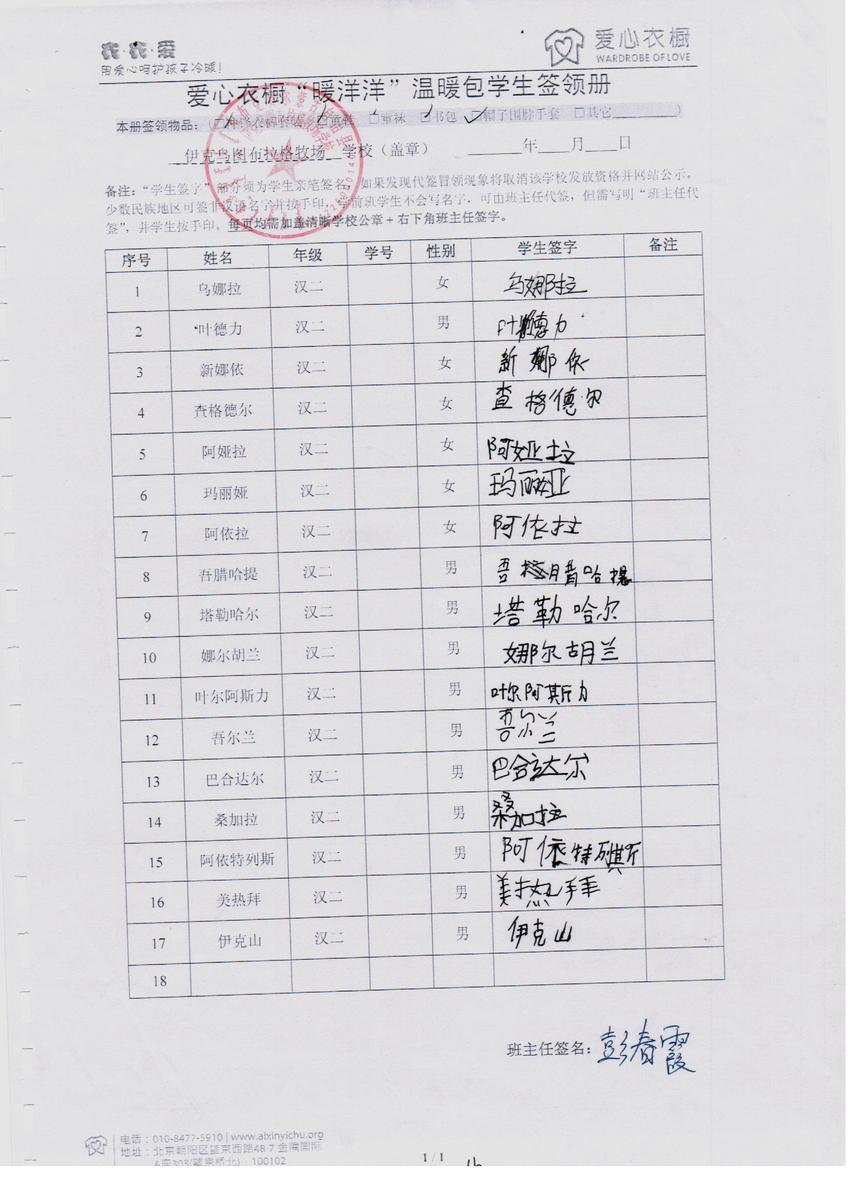 衣·衣·爱
用爱心呵护孩子冷暖!
爱心衣橱
WARDROBE OF LOVE
爱心衣橱“暖洋洋”温暖包学生签领册
本册签领物品:(□冲锋衣裤套装 □童鞋 □童袜 □书包 □帽子围脖手套 □其它________)
伊克乌图布拉格牧场 学校(盖章) ____年____月____日
备注:“学生签字”部分须为学生亲笔签名,如果发现代签冒领现象将取消该学校发放资格并网站公示。
少数民族地区可签非汉语名字并按手印,学前班学生不会写名字,可由班主任代签,但需写明“班主任代
签”,并学生按手印。每页均需加盖清晰学校公章+右下角班主任签字。
序号 姓名 年级 学号 性别 学生签字 备注
1 乌娜拉 汉二 女 乌娜拉
2 叶德力 汉二 男 叶德力
3 新娜依 汉二 女 新娜依
4 查格德尔 汉二 女 查格德尔
5 阿娅拉 汉二 女 阿娅拉
6 玛丽娅 汉二 女 玛丽娅
7 阿依拉 汉二 女 阿依拉
8 吾腊哈提 汉二 男 吾腊哈提
9 塔勒哈尔 汉二 男 塔勒哈尔
10 娜尔胡兰 汉二 男 娜尔胡兰
11 叶尔阿斯力 汉二 男 叶尔阿斯力
12 吾尔兰 汉二 男 吾尔兰
13 巴合达尔 汉二 男 巴合达尔
14 桑加拉 汉二 男 桑加拉
15 阿依特列斯 汉二 男 阿依特列斯
16 美热拜 汉二 男 美热拜
17 伊克山 汉二 男 伊克山
18
班主任签名:彭春霞
电话:010-8477-5910 | www.aixinyichu.org
地址:北京朝阳区望京西路48-7 金隅国际
A座303(望京桥北)·100102
1 / 1